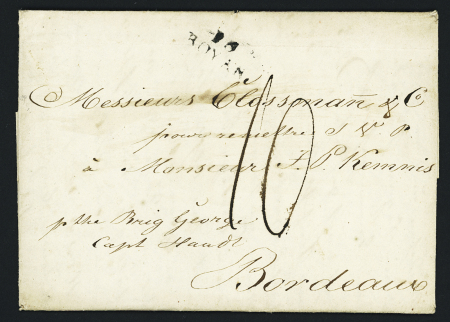 ROYAN
Messieurs Clossmañ & Co
pour remettre S. V. P.
à Monsieur J. P. Kemnis
10
p the Brig George
Capt
Bordeaux